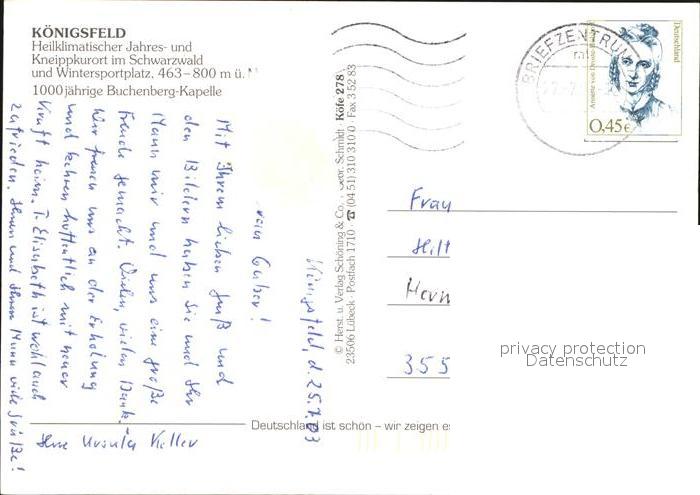 KÖNIGSFELD
Heilklimatischer Jahres- und
Kneippkurort im Schwarzwald
und Wintersportplatz, 463–800 m ü. N
1000jährige Buchenberg-Kapelle
Königsfeld, d. 25.7.03
Mit Ihrem lieben Gruß und
den Bildern haben Sie und Ihr
Mann mir und uns eine große
Freude gemacht. Vielen, vielen Dank.
Wir freuen uns an der Erholung
und kehren hoffentlich mit neuer
Kraft heim. T. Elisabeth ist wohlauch
zufrieden. Ihnen und Ihrem Mann viele Grüße!
Ihre Ursula Keller
© Herst. u. Verlag Schöning & Co. Schmidt · Köfe 278
23506 Lübeck · Postfach 1710 · ☎ (04 51) 310 310 0 · Fax 3 52 83
Deutschland ist schön – wir zeigen es
BRIEFZENTRUM
Deutschland
Annette von Droste-
0,45€
Frau
Hilt
Herm
355
privacy protection
Datenschutz